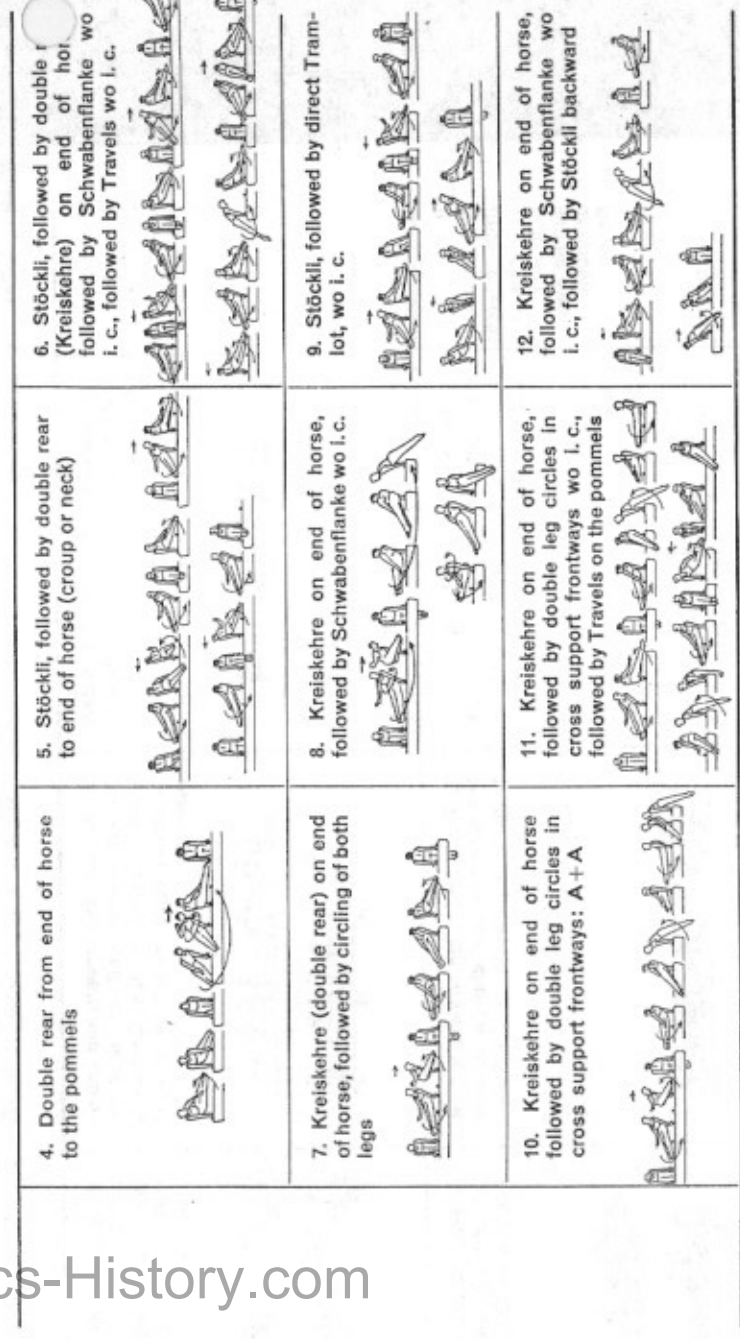 4. Double rear from end of horse
to the pommels
5. Stöckli, followed by double rear
to end of horse (croup or neck)
6. Stöckli, followed by double
(Kreiskehre) on end of
followed by Schwabenflanke wo
i. c., followed by Travels wo i. c.
7. Kreiskehre (double rear) on end
of horse, followed by circling of both
legs
8. Kreiskehre on end of horse,
followed by Schwabenflanke wo i.c.
9. Stöckli, followed by direct Tram-
lot, wo i. c.
10. Kreiskehre on end of horse
followed by double leg circles in
cross support frontways: A+A
11. Kreiskehre on end of horse,
followed by double leg circles in
cross support frontways wo i. c.,
followed by Travels on the pommels
12. Kreiskehre on end of horse,
followed by Schwabenflanke wo
i. c., followed by Stöckli backward
cs-History.com